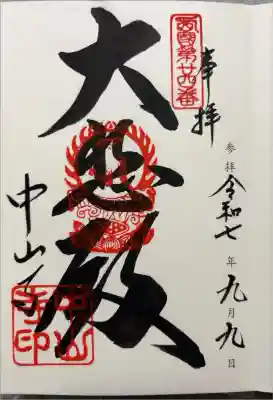 奉拝
参拝 令和七年九月九日
西國第廿四番
大悲殿
中山寺
中山寺印